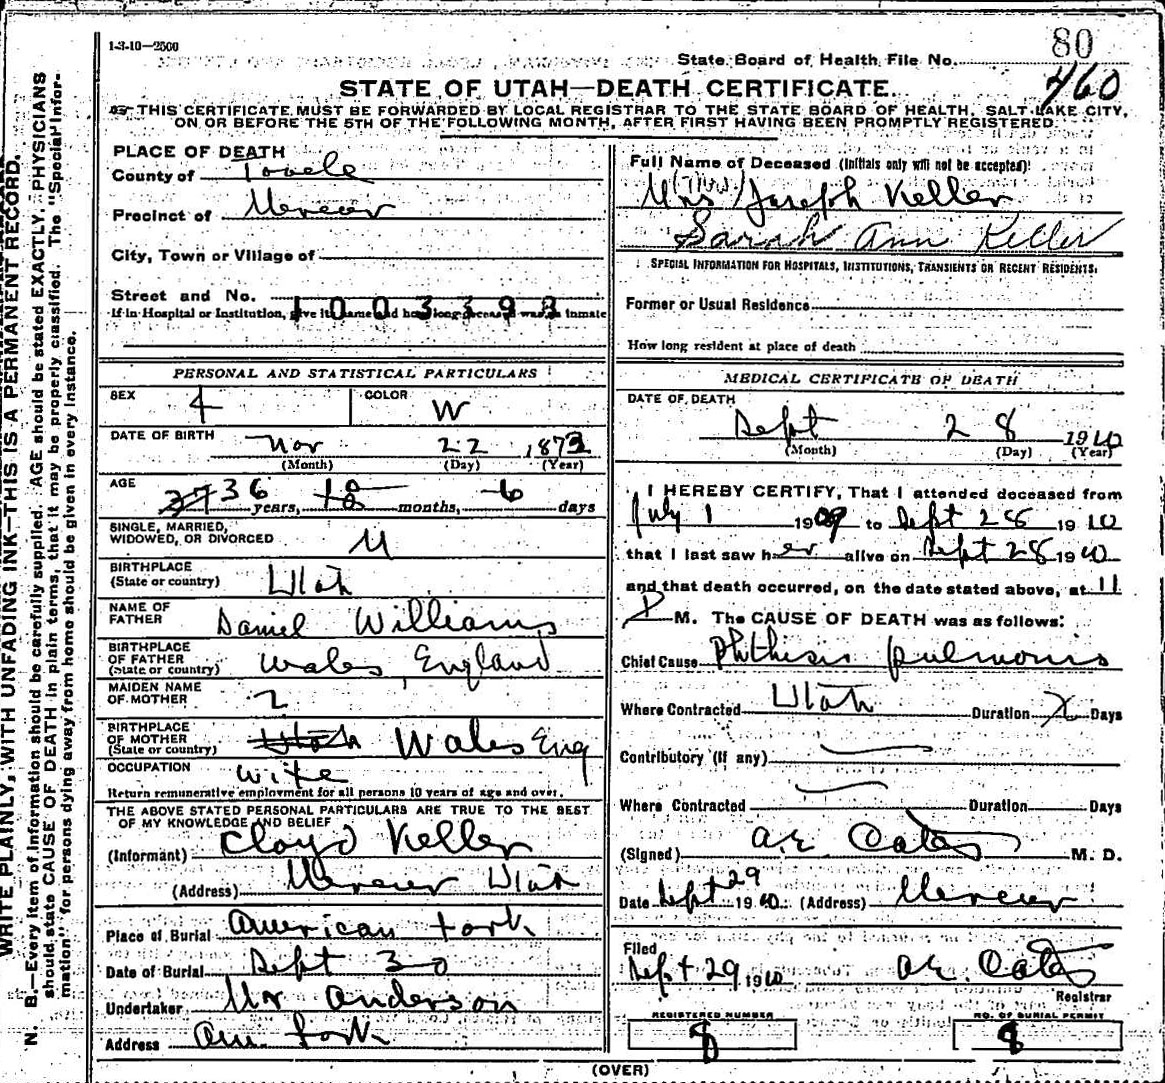 1-3-10—2500
80
State Board of Health File No.
460
STATE OF UTAH—DEATH CERTIFICATE.
THIS CERTIFICATE MUST BE FORWARDED BY LOCAL REGISTRAR TO THE STATE BOARD OF HEALTH, SALT LAKE CITY,
ON OR BEFORE THE 5TH OF THE FOLLOWING MONTH, AFTER FIRST HAVING BEEN PROMPTLY REGISTERED
PLACE OF DEATH
County of Tooele
Precinct of Mercur
City, Town or Village of
Street and No.
1003398
If in Hospital or Institution, give its name and how long deceased was an inmate
Full Name of Deceased (Initials only will not be accepted):
Mrs (Mrs) Joseph Keller
Sarah Ann Keller
SPECIAL INFORMATION FOR HOSPITALS, INSTITUTIONS, TRANSIENTS OR RECENT RESIDENTS.
Former or Usual Residence
How long resident at place of death
PERSONAL AND STATISTICAL PARTICULARS
SEX f COLOR W
DATE OF BIRTH Nov 22, 1873
(Month) (Day) (Year)
AGE 37 36 years, 10 months, 6 days
SINGLE, MARRIED,
WIDOWED, OR DIVORCED M
BIRTHPLACE
(State or country) Utah
NAME OF
FATHER Daniel Williams
BIRTHPLACE
OF FATHER
(State or country) Wales, England
MAIDEN NAME
OF MOTHER ?
BIRTHPLACE
OF MOTHER
(State or country) Utah Wales Eng
OCCUPATION wife
Return remunerative employment for all persons 10 years of age and over.
THE ABOVE STATED PERSONAL PARTICULARS ARE TRUE TO THE BEST
OF MY KNOWLEDGE AND BELIEF
(Informant) Cloyd Keller
(Address) Mercur Utah
Place of Burial American Fork
Date of Burial Sept 30
Undertaker Mr Anderson
Address Am Fork
MEDICAL CERTIFICATE OF DEATH
DATE OF DEATH
Sept 28 1910
(Month) (Day) (Year)
I HEREBY CERTIFY, That I attended deceased from
July 1 1909 to Sept 28 1910
that I last saw her alive on Sept 28 1910
and that death occurred, on the date stated above, at 11
P M. The CAUSE OF DEATH was as follows:
Chief Cause Phthisis pulmonis
Where Contracted Utah Duration Days
Contributory (if any)
Where Contracted Duration Days
(Signed) A.E. Oates M. D.
Date Sept 29 1910. (Address) Mercur
Filed
Sept 29 1910 A.E. Oates
Registrar
REGISTERED NUMBER
8
NO. OF BURIAL PERMIT
8
(OVER)
WRITE PLAINLY, WITH UNFADING INK—THIS IS A PERMANENT RECORD.
N. B.—Every item of information should be carefully supplied. AGE should be stated EXACTLY. PHYSICIANS
should state CAUSE OF DEATH in plain terms, that it may be properly classified. The "Special Infor-
mation" for persons dying away from home should be given in every instance.